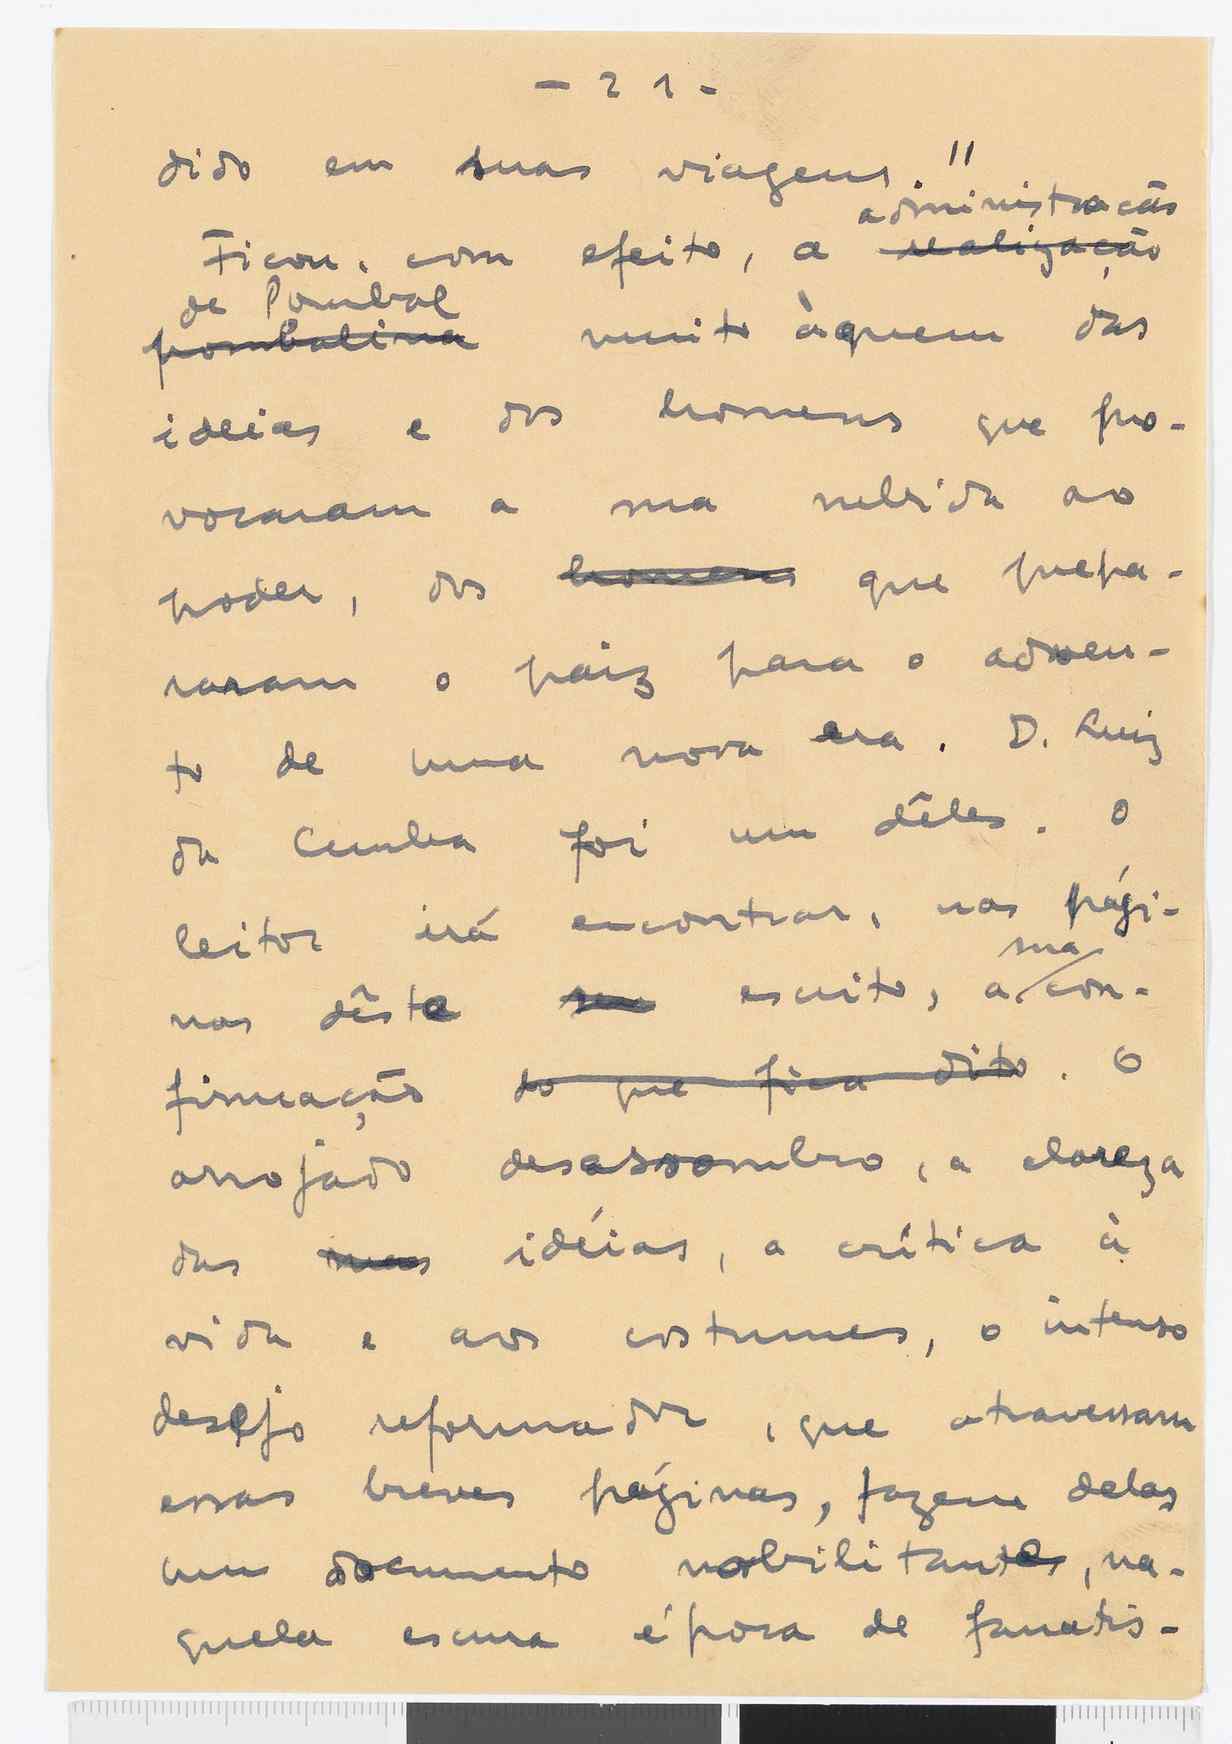 - 21 -
dido em suas viagens."
administração
Ficou, com efeito, a realização
de Pombal
pombalina muito àquem das
ideias e dos homens que pro-
vocaram a sua subida ao
poder, dos homens que prepa-
raram o paiz para o adven-
to de uma nova era. D. Luiz
da Cunha foi um dêles. O
leitor irá encontrar, nas pági-
sua
nas dêste seu escrito, a con-
firmação do que fica dito. O
arrojado desassombro, a clareza
das suas idéias, a crítica à
vida e aos costumes, o intenso
desejo reformador, que atravessam
essas breves páginas, fazem delas
um documento nobilitante, na-
quela escura época de fanatis-